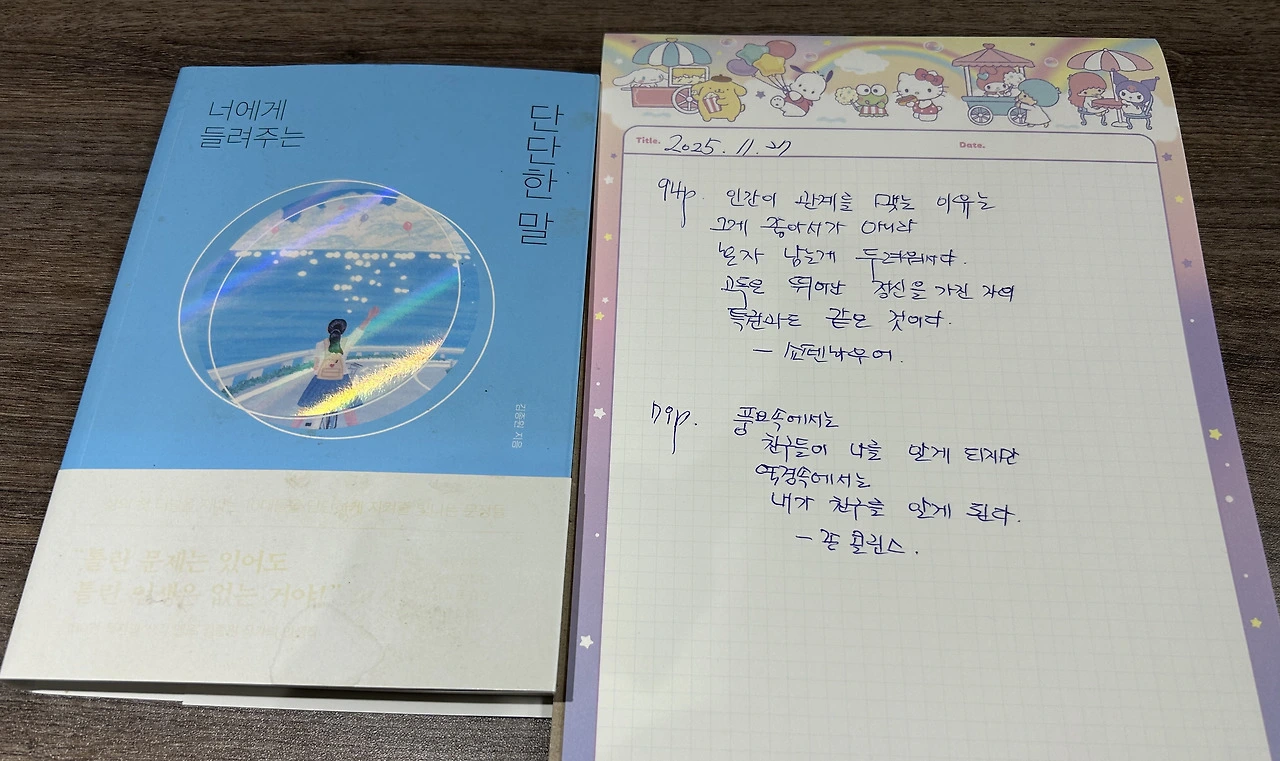 너에게
들려주는
단단한 말
김종원 지음
"틀린 문제는 있어도
틀린 인생은 없는 거야!"
Title. 2025. 11. 27
Date.
94p. 인간이 관계를 맺는 이유는
그게 좋아서가 아니라
혼자 남는게 두려워서다.
고독은 뛰어난 정신을 가진 자의
특권과도 같은 것이다.
- 쇼펜하우어.
79p. 풍요속에서는
친구들이 나를 알게 되지만
역경속에서는
내가 친구를 알게 된다.
- 존 콜린스.